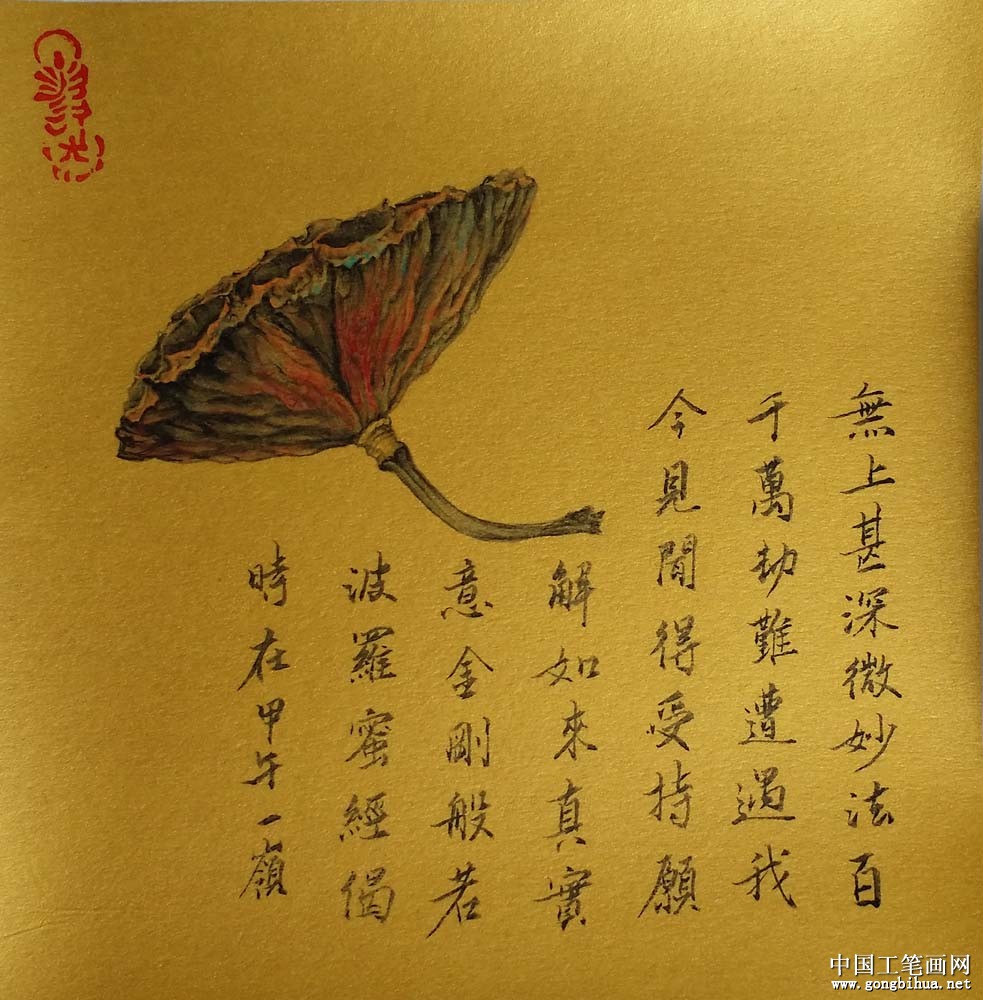 無上甚深微妙法百
千萬劫難遭遇我
今見聞得受持願
解如來真實
意金剛般若
波羅蜜經偈
時在甲午一嶺
中国工笔画网
www.gongbihua.net